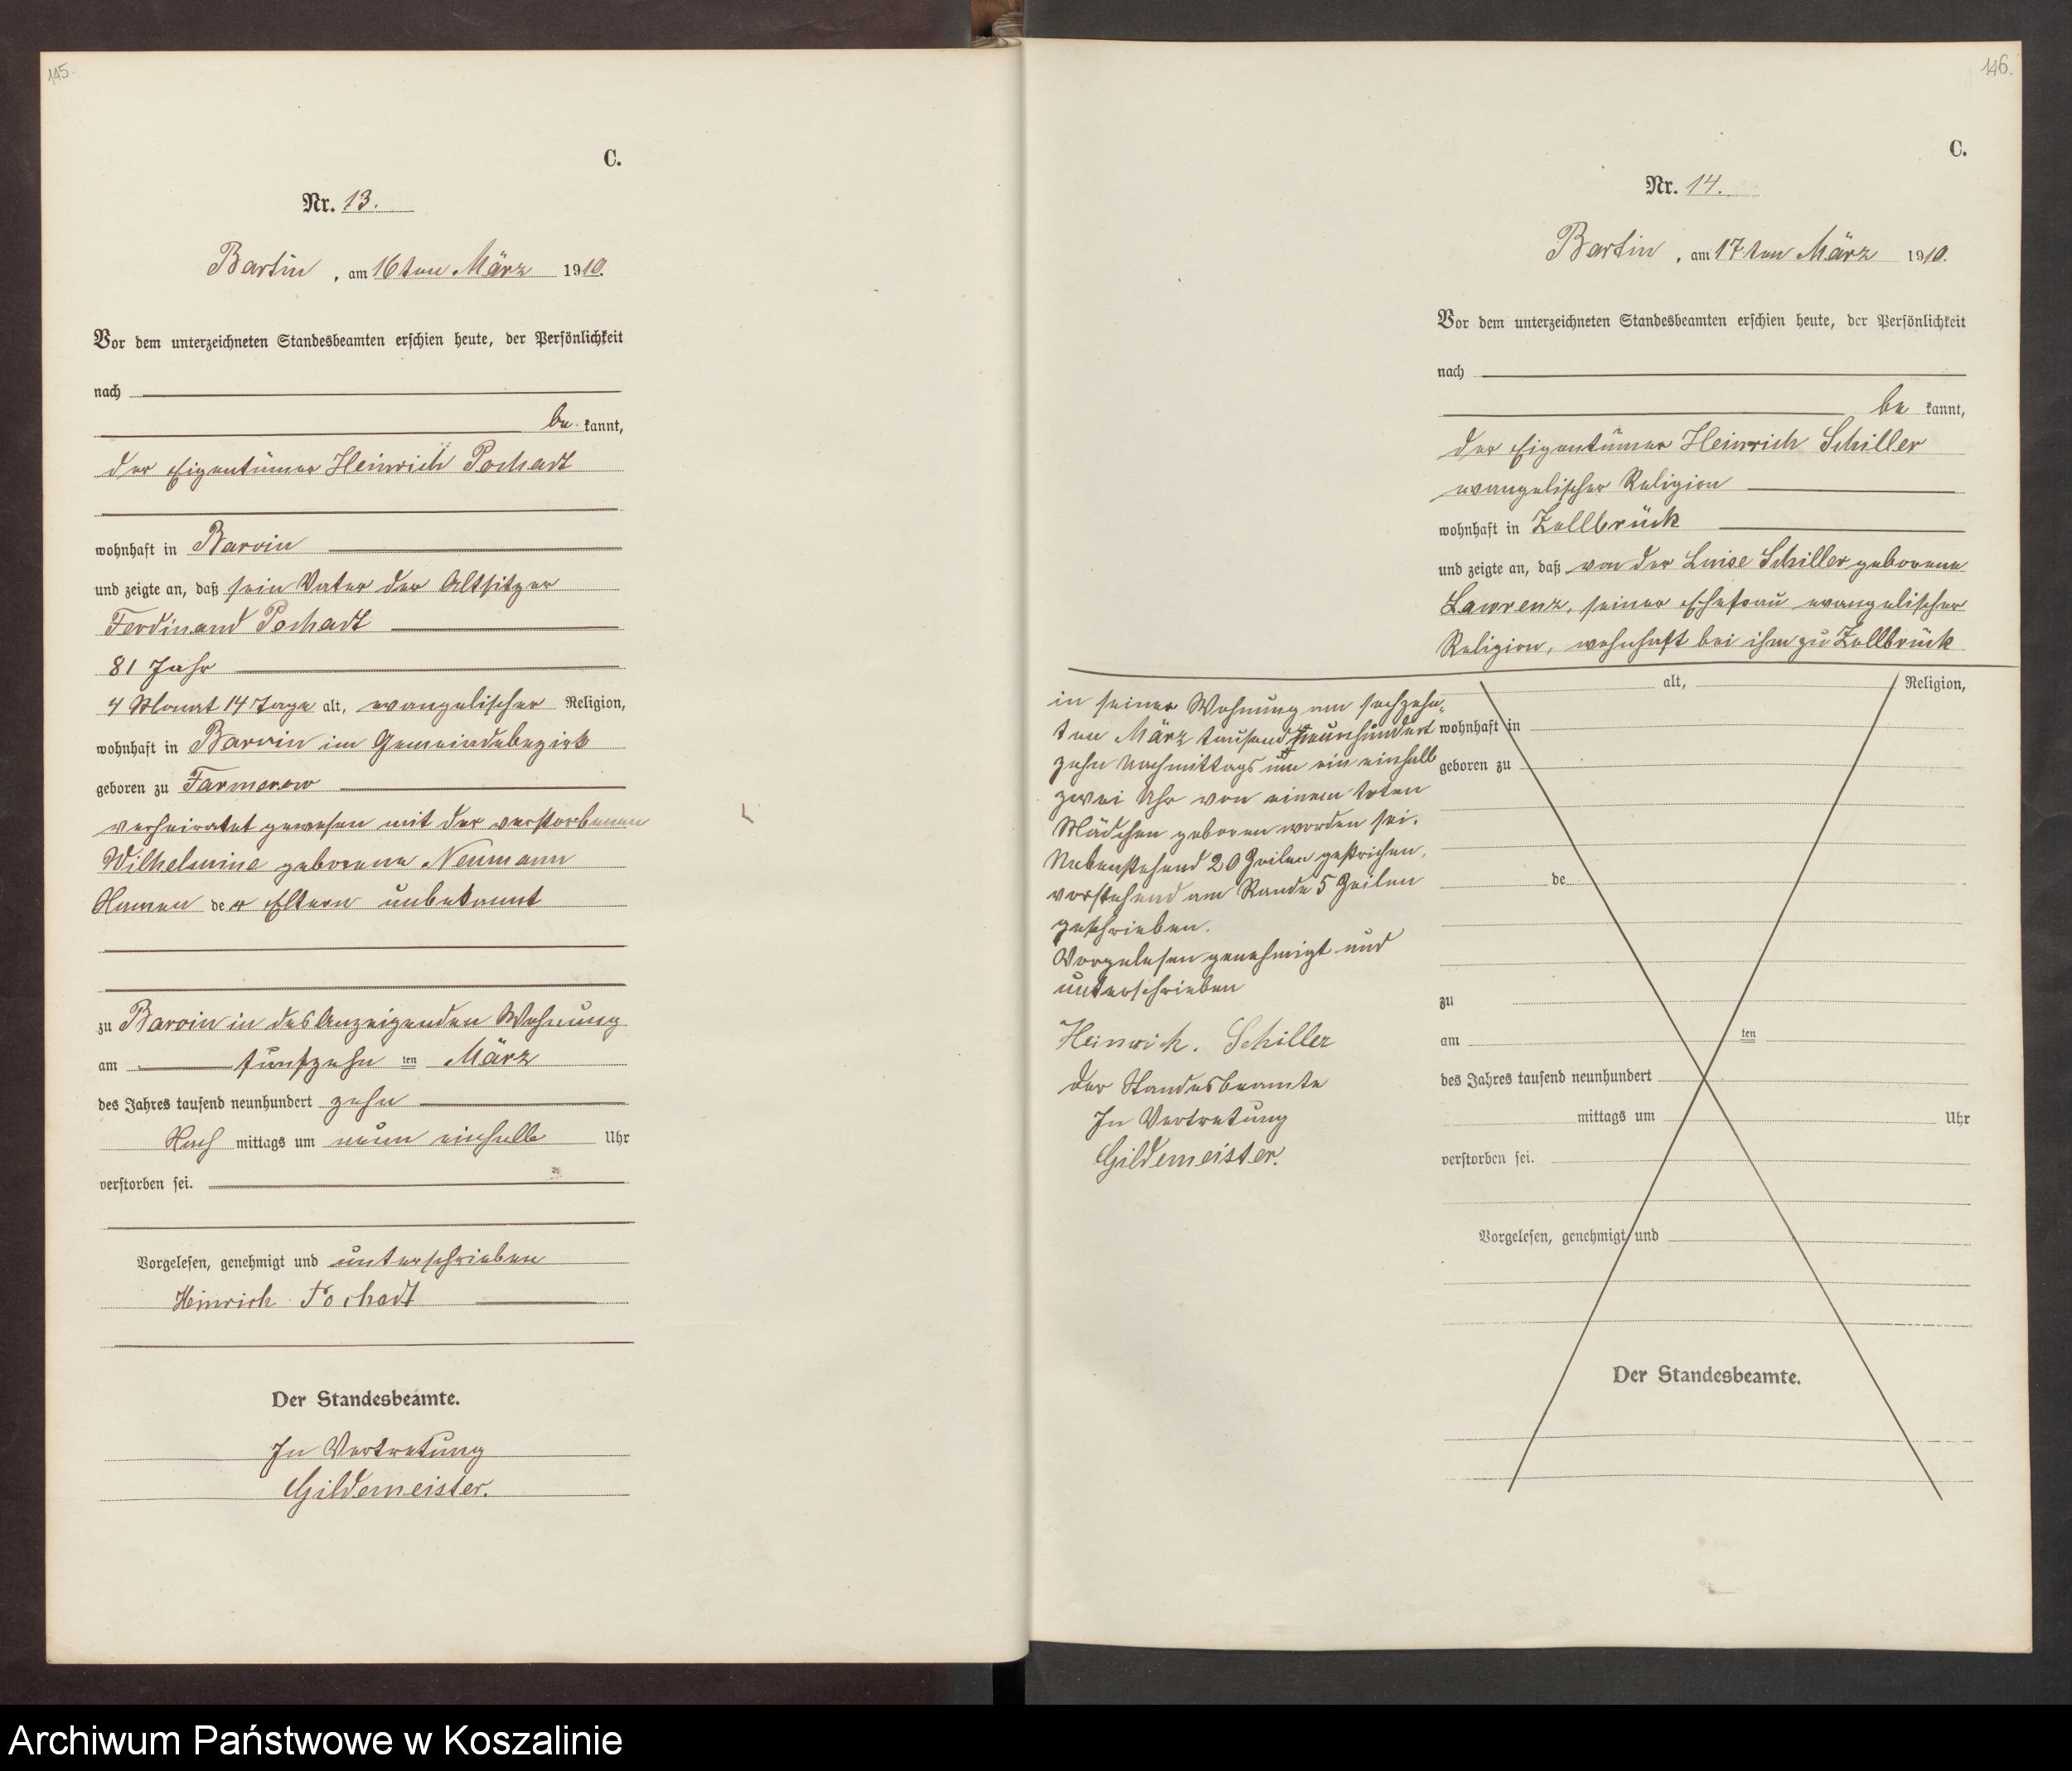 145.
C.
Nr. 13.
Bartin, am 16ten März 1910.
Vor dem unterzeichneten Standesbeamten erschien heute, der Persönlichkeit
nach
be kannt,
der Eigentümer Heinrich Pochadt
wohnhaft in Barvin
und zeigte an, daß sein Vater der Altsitzer
Ferdinand Pochadt
81 Jahr
4 Monat 14 Tage alt, evangelischer Religion,
wohnhaft in Barvin im Gemeindebezirk
geboren zu Farmerow
verheiratet gewesen mit der verstorbenen
Wilhelmine geborene Neumann
Namen der Eltern unbekannt
zu Barvin in des Anzeigenden Wohnung
am fünfzehn ten März
des Jahres tausend neunhundert zehn
Nach mittags um neun einhalb Uhr
verstorben sei.
Vorgelesen, genehmigt und unterschrieben
Heinrich Pochadt
Der Standesbeamte.
In Vertretung
Gildemeister.
146.
C.
Nr. 14.
Bartin, am 17ten März 1910.
Vor dem unterzeichneten Standesbeamten erschien heute, der Persönlichkeit
nach
be kannt,
der Eigentümer Heinrich Schiller
evangelischer Religion
wohnhaft in Zollbrück
und zeigte an, daß von der Luise Schiller geborene
Lawrenz, seiner Ehefrau evangelischer
Religion, wohnhaft bei ihm zu Zollbrück
in seiner Wohnung am sechzehn-
ten März tausend neunhundert
zehn Nachmittags um ein einhalb
zwei Uhr von einem toten
Mädchen geboren worden sei.
Nebenstehend 20 Zeilen gestrichen,
vorstehend am Rande 5 Zeilen
geschrieben.
Vorgelesen genehmigt und
unterschrieben
Heinrich. Schiller
Der Standesbeamte
In Vertretung
Gildemeister.
alt, Religion,
wohnhaft in
geboren zu
de
zu
am ten
des Jahres tausend neunhundert
mittags um Uhr
verstorben sei.
Vorgelesen, genehmigt und
Der Standesbeamte.
Archiwum Państwowe w Koszalinie